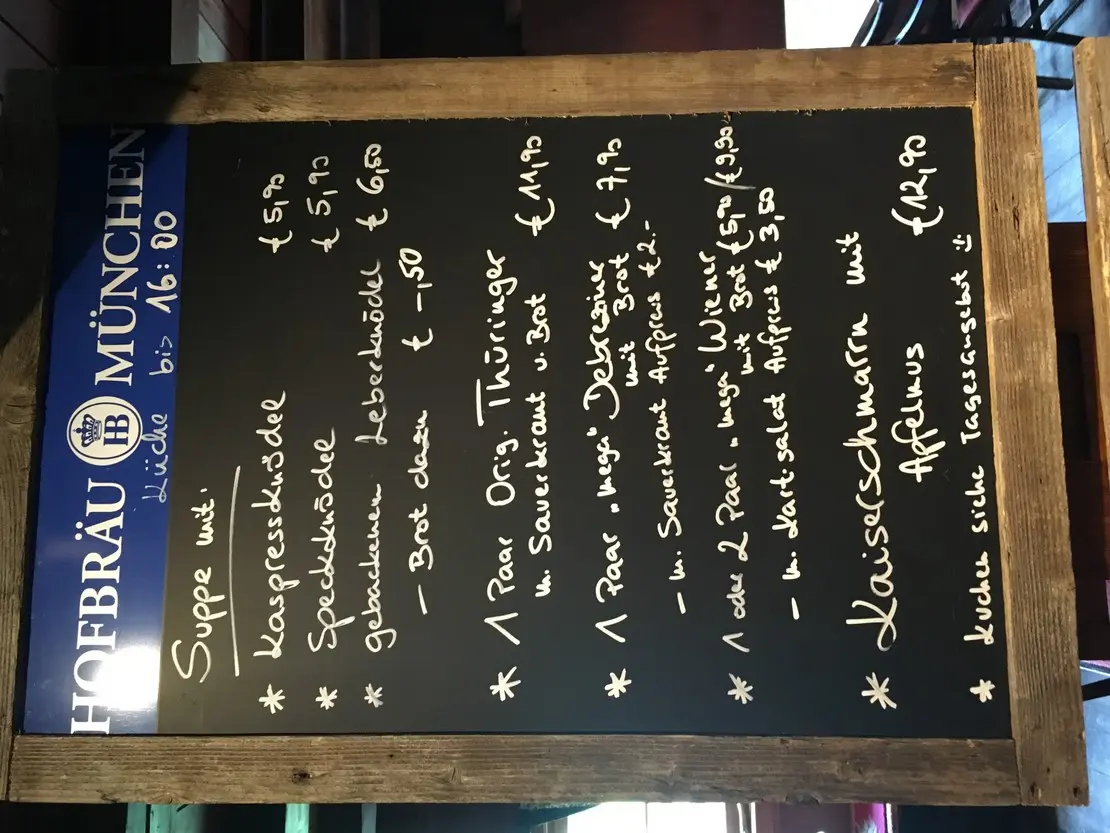 HOFBRÄU HB MÜNCHEN
Küche bis 16:00
Suppe mit:
* Kaspressknödel € 5,90
* Speckknödel € 5,90
* gebackenem Leberknödel € 6,50
– Brot dazu € -,50
* 1 Paar Orig. Thüringer
m. Sauerkraut u. Brot € 11,90
* 1 Paar „mega" Debreziner
mit Brot € 7,90
– m. Sauerkraut Aufpreis € 2.-
* 1 oder 2 Paar „mega" Wiener
mit Brot € 5,90 / € 9,90
– m. Kart.salat Aufpreis € 3,50
* Kaiserschmarrn mit
Apfelmus € 12,90
* Kuchen siehe Tagesangebot :)